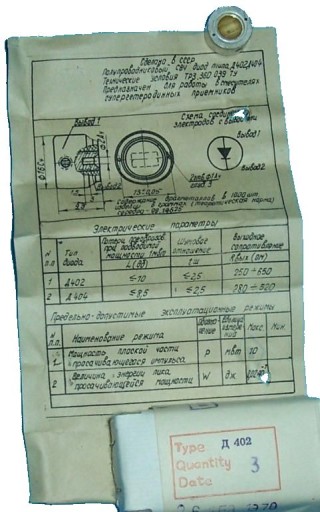 Сделано в СССР
Полупроводниковый СВЧ диод типа Д402, Д404
Технические условия ТР3.360.039 ТУ
Предназначен для работы в смесителях
супергетеродинных приемников
Схема соединения
электродов с выводами
Вывод 1
Вывод 1
Вывод 2
Вывод 2
Содержание драгметаллов в 1000 шт.
Электрические параметры
N п.п.
Тип диода
Потери преобразов. при подводимой мощности 1мвт
L (дб)
Шумовое отношение
t ш
Выходное сопротивление
Rвых (ом)
1 Д402 ≤10 ≤2,5 250 ÷ 550
2 Д404 ≤8,5 ≤2,5
Предельно-допустимые эксплуатационные режимы
N п.п.
Наименование режима
Макс.
Мин.
1 Мощность плоской части просачивающегося импульса P мвт 10
2 Величина энергии пика, просачивающейся мощности W дж
Type Д 402
Quantity 3
Date